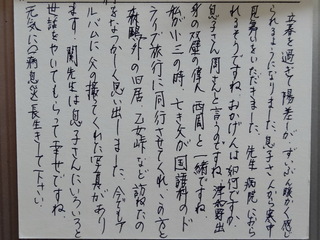 立春を過ぎて陽差しが、ずいぶん暖かく感じ
られるようになりました。息子さんから寒中
見舞いをいただきました。先生、病院に
れるそうですね。おかげんは如何ですか。
息子さん周さんと言うのですね。津和野出
身の双璧の偉人西周と一緒ですね。
私が小三の時、亡き父が国語科のド
ライブ旅行に同行させてくれ、この方と
森鷗外の旧居、乙女峠など訪ねたの
をなつかしく思い出しました。今でもア
ルバムに父の撮ってくれた写真があり
ます。関先生は息子さんにいろいろと
世話をやいてもらって幸せですね。
元気に(一病息災)長生きして下さい。